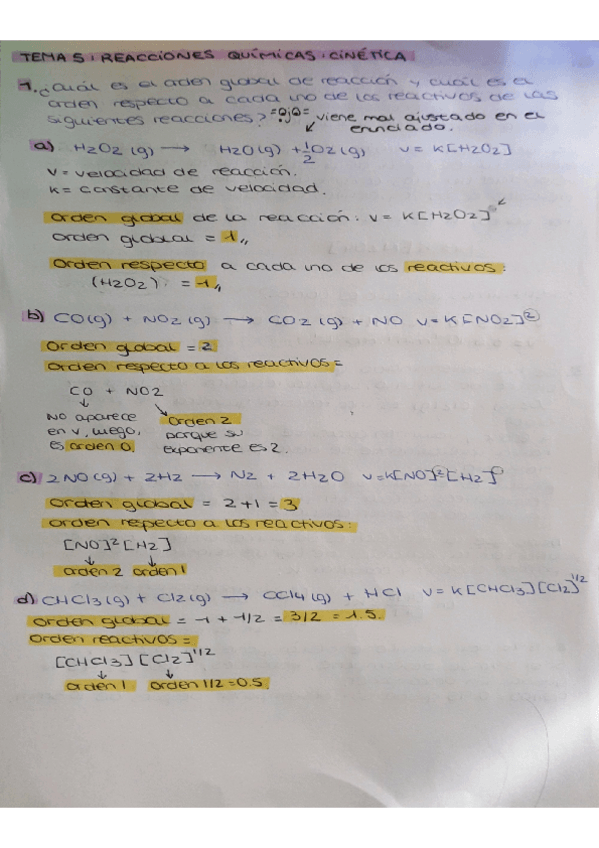 TEMA 5: REACCIONES QUÍMICAS: CINÉTICA
1. ¿Cuál es el orden global de reacción y cuál es el
orden respecto a cada uno de los reactivos de las
siguientes reacciones? =OjO= viene mal ajustado en el
enunciado.
a) H2O2 (g) → H2O (g) + 1/2 O2 (g) v = K[H2O2]
V = velocidad de reacción.
K = constante de velocidad.
Orden global de la reacción: v = K[H2O2]
Orden global = 1,,
Orden respecto a cada uno de los reactivos:
(H2O2) = 1,,
b) CO(g) + NO2 (g) → CO2 (g) + NO v = K[NO2]②
Orden global = 2
Orden respecto a los reactivos =
CO + NO2
NO aparece
en v, luego,
es orden 0.
Orden 2
porque su
exponente es 2.
c) 2NO (g) + 2H2 → N2 + 2H2O v = K[NO]²[H2]
Orden global = 2+1 = 3
Orden repecto a los reactivos:
[NO]² [H2]
orden 2 orden 1
d) CHCl3 (g) + Cl2 (g) → CCl4 (g) + HCl v = K[CHCl3][Cl2]^1/2
Orden global = 1 + 1/2 = 3/2 = 1.5.
Orden reactivos =
[CHCl3] [Cl2]^1/2
orden 1 orden 1/2 = 0.5.